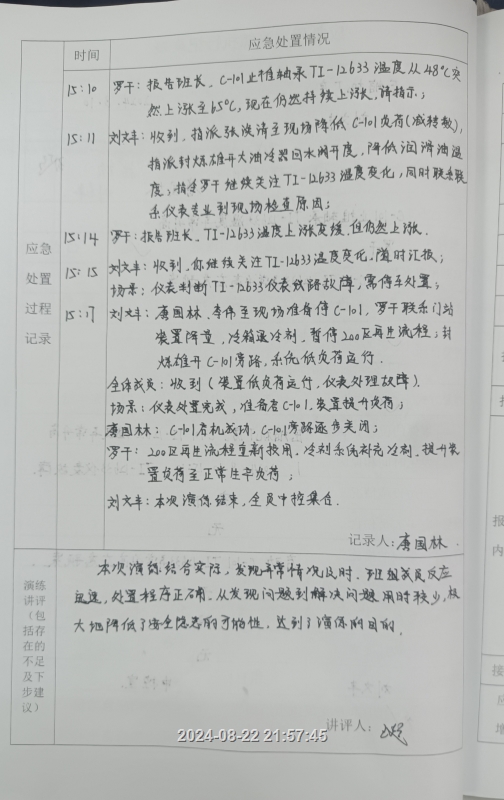 应急处置情况
时间
15:10 罗干: 报告班长、C-101止推轴承TI-12633温度从48℃突
然上涨至65℃,现在仍然持续上涨,请指示;
15:11 刘文丰: 收到,指派张浪涛至现场降低C-101负荷(减转数),
指派封炼雄开大油冷器回水阀开度,降低润滑油温
度;指令罗干继续关注TI-12633温度变化,同时联系联
系仪表专业到现场检查原因;
15:14 罗干: 报告班长、TI-12633温度上涨变缓,但仍然上涨.
15:15 刘文丰: 收到,你继续关注TI-12633温度变化,随时汇报;
场景: 仪表判断TI-12633仪表线路故障,需停车处置;
应急
处置
过程
记录
15:17 刘文丰: 唐国林、李伟至现场准备停C-101,罗干联系门站
装置降量,冷箱退冷剂,暂停200区再生流程;封
炼雄开C-101旁路,系统低负荷运行.
全体成员: 收到(装置低负荷运行,仪表处理故障).
场景: 仪表处置完成,准备启C-101,装置提升负荷;
唐国林: C-101启机成功,C-101旁路逐步关闭;
罗干: 200区再生流程重新投用,冷剂系统补充冷剂,提升装
置负荷至正常生产负荷;
刘文丰: 本次演练结束,全员中控集合.
记录人: 唐国林
演练
讲评
(包
括存
在的
不足
及下
步建
议)
本次演练结合实际,发现异常情况及时,班组成员反应
迅速,处置程序正确,从发现问题到解决问题用时较少,极
大地降低了安全隐患的可能性,达到了演练的目的.
讲评人:
2024-08-22 21:57:45
报
内
接
应
地